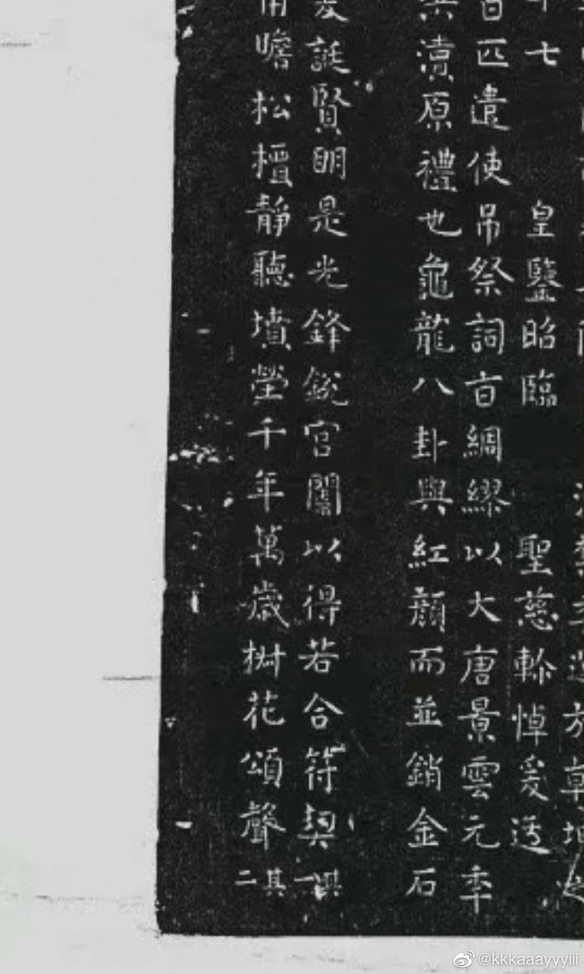 七　皇鑒昭臨　聖慈軫悼爰送
百匹遣使吊祭詞旨綢繆以大唐景雲元年
瀆原禮也龜龍八卦與紅顏而並銷金石
誕賢明是光鋒銳宮闈以得若合符契其一
瞻松檟靜聽墳塋千年萬歲椒花頌聲其二
@kkkaaayyyiii